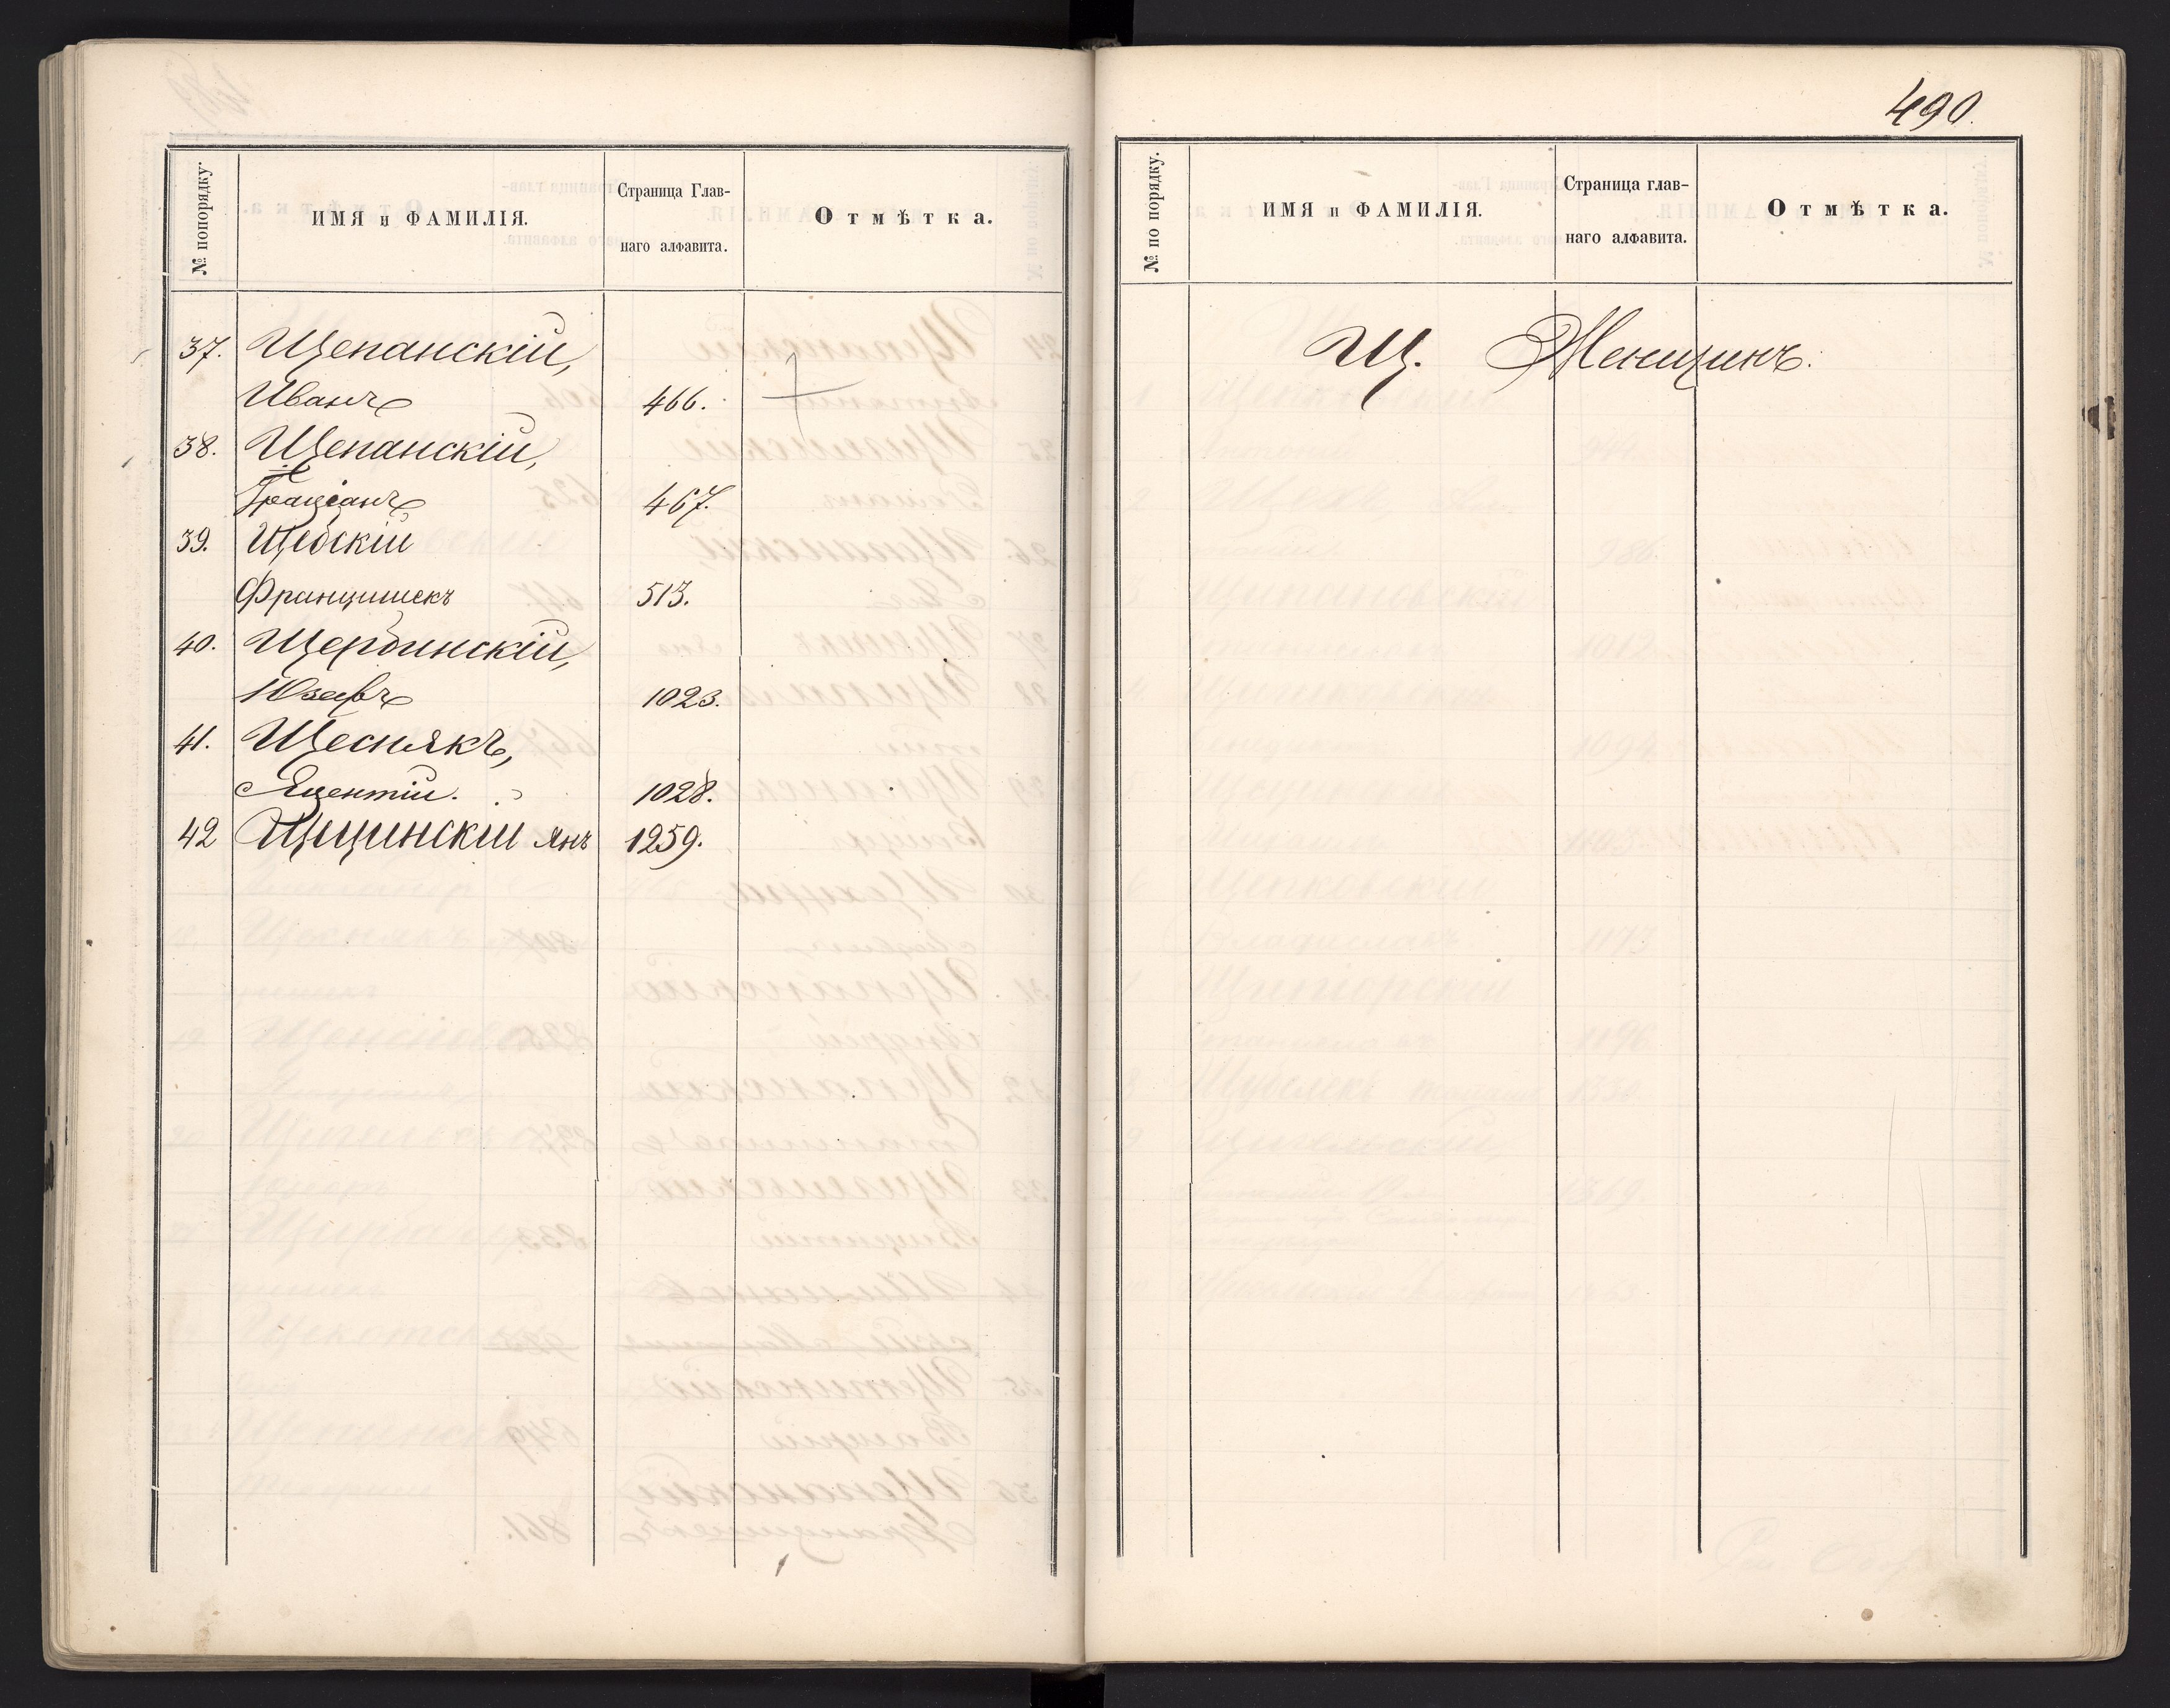 № попорядку.
ИМЯ и ФАМИЛІЯ.
Страница Глав-
наго алфавита.
Отмѣтка.
37. Щепанскій,
Иванъ 466.
38. Щепанскій,
Граціанъ 467.
39. Щебскій
Францишекъ 513.
40. Щербинскій,
Юзефъ 1023.
41. Щеснякъ,
Яцентій. 1028.
42 Щицинскій Янъ 1259.
490.
№ по порядку.
ИМЯ и ФАМИЛІЯ.
Страница глав-
наго алфавита.
Отмѣтка.
Щ. Женщинъ.